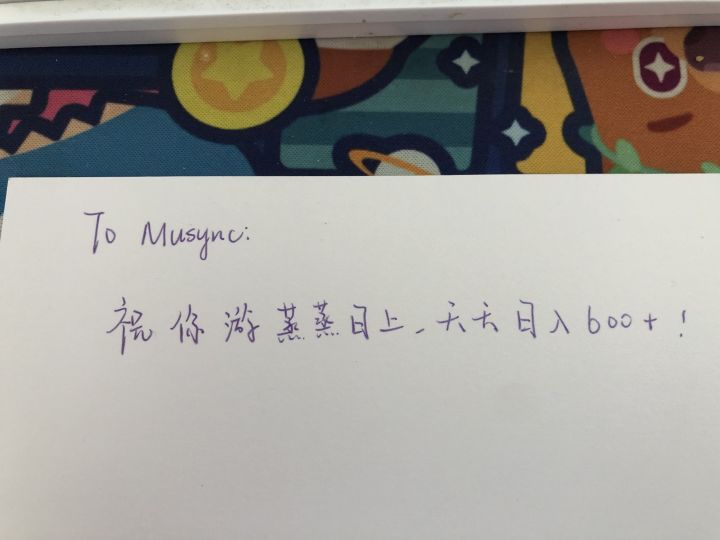 To Musync:
祝你游蒸蒸日上、天天日入600+！